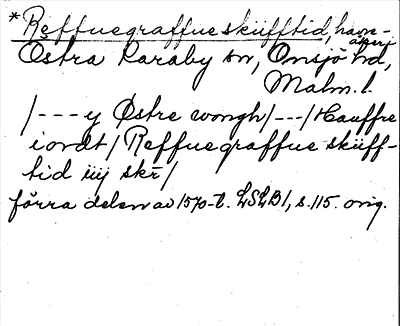 *Reffuegraffue sküfftid, havre-
åker i
Östra Karaby sn, Onsjö hd,
Malm. l.
/---y Østre wongh/---/Hauffre
iordt/Reffuegraffue sküff-
tid iiij skr/
förra delen av 1570-t. LSLB1, s. 115. orig.